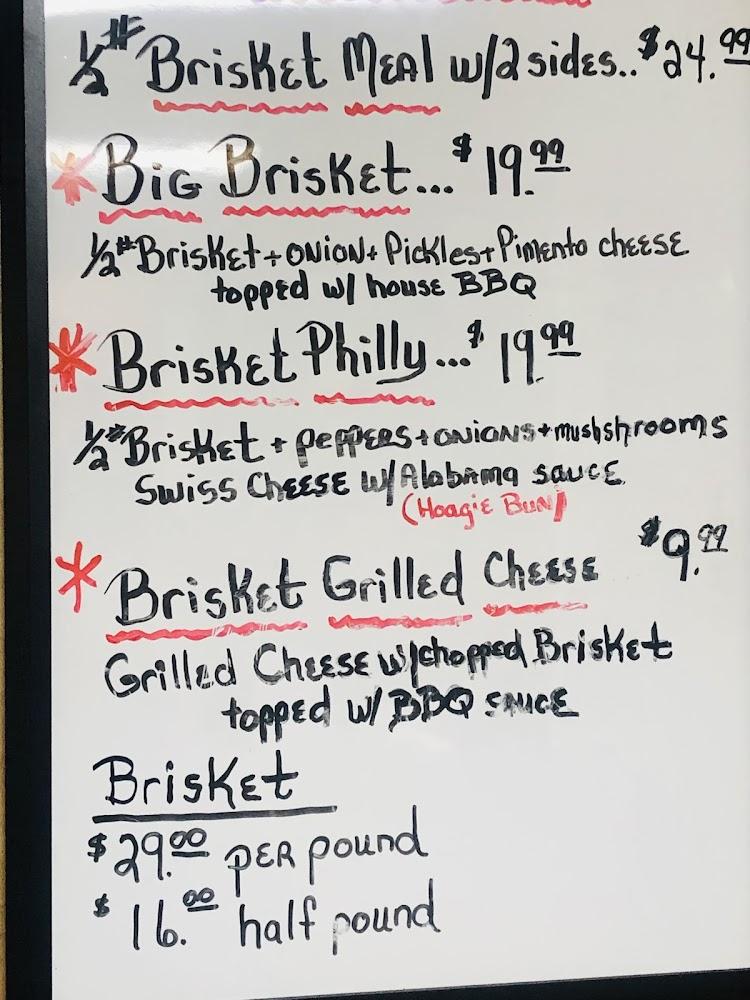 1/2# Brisket Meal w/2 sides..$24.99
* Big Brisket...$19.99
1/2# Brisket + onion + Pickles + Pimento cheese
topped w/ house BBQ
* Brisket Philly...$19.99
1/2# Brisket + peppers + onions + mushshrooms
Swiss Cheese w/Alabama sauce
(Hoagie Bun)
* Brisket Grilled Cheese $9.99
Grilled Cheese w/chopped Brisket
topped w/ BBQ sauce
Brisket
$29.00 per pound
$16.00 half pound